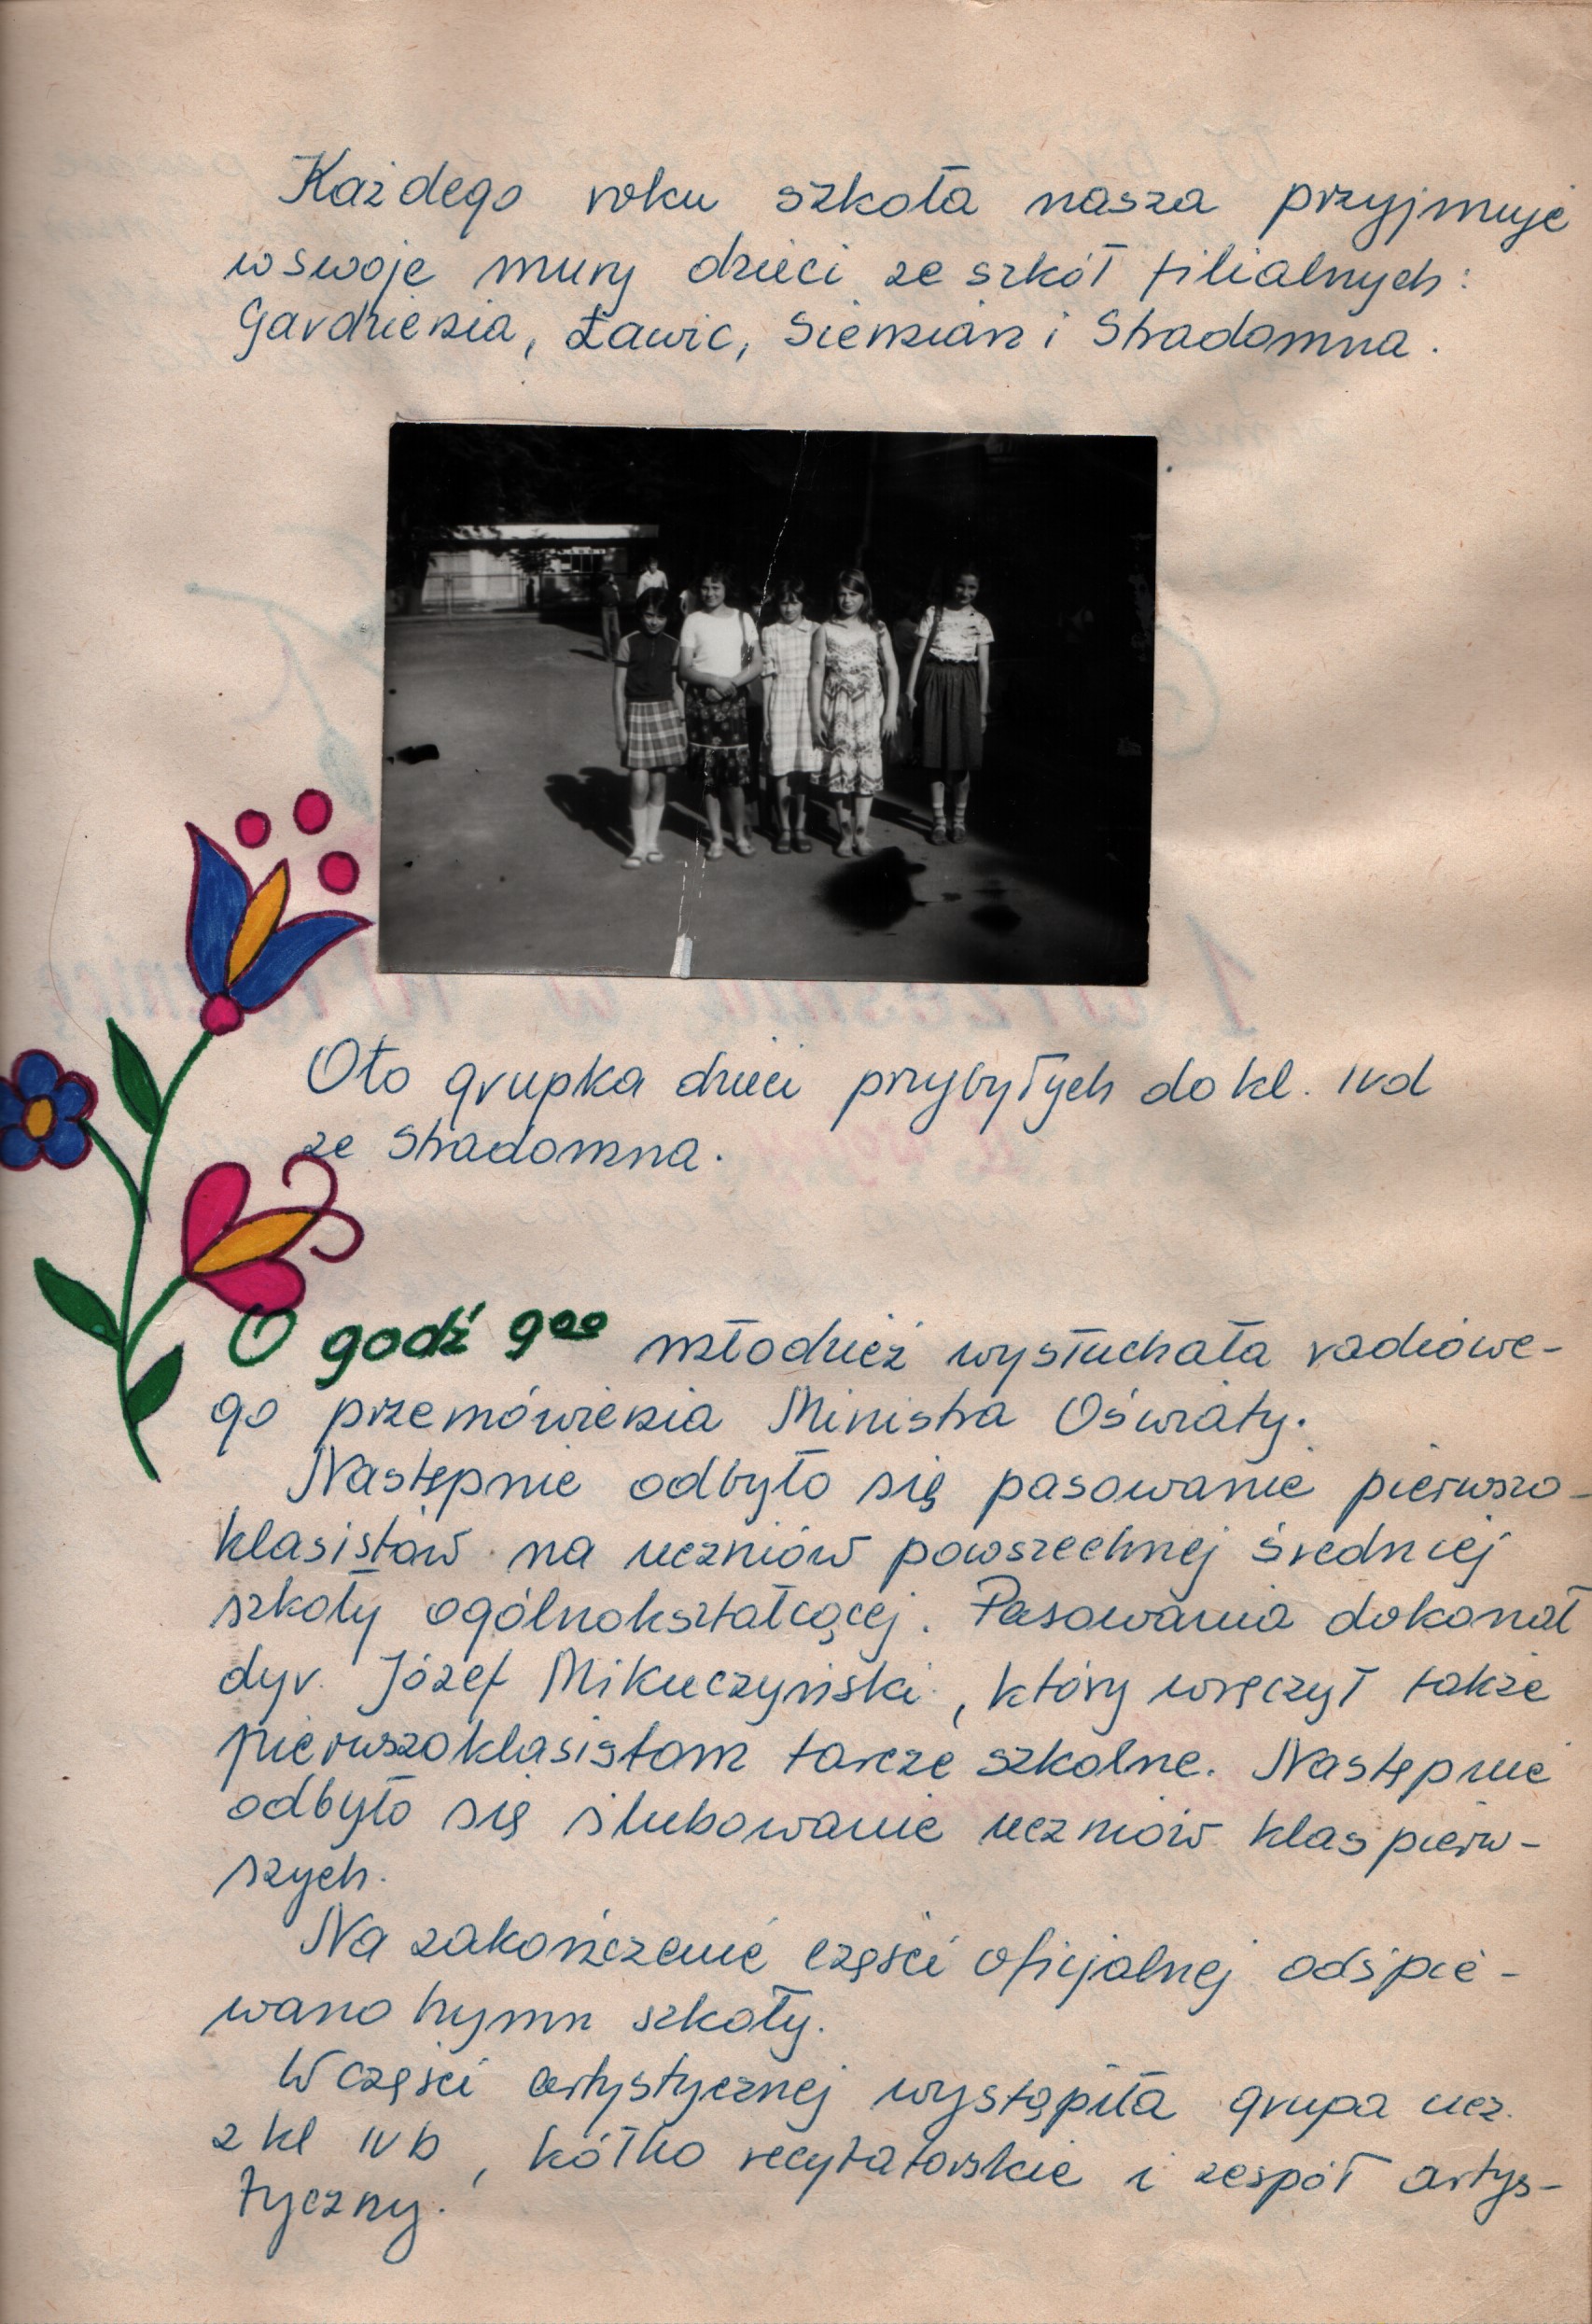 Każdego roku szkoła nasza przyjmuje
w swoje mury dzieci ze szkół filialnych:
Gardzienia, Ławic, Siemian i Stradomna.
Oto grupka dzieci przybyłych do kl. IVd
ze Stradomna.
O godź 9⁰⁰ młodzież wysłuchała radiowe-
go przemówienia Ministra Oświaty.
Następnie odbyło się pasowanie pierwszo-
klasistów na uczniów powszechnej średniej
szkoły ogólnokształcącej. Pasowania dokonał
dyr. Józef Mikuczyński, który wręczył także
pierwszoklasistom tarcze szkolne. Następnie
odbyło się ślubowanie uczniów klas pierw-
szych.
Na zakończenie części oficjalnej odśpie-
wano hymn szkoły.
W części artystycznej wystąpiła grupa ucz.
z kl IV b, kółko recytatorskie i zespół artys-
tyczny.